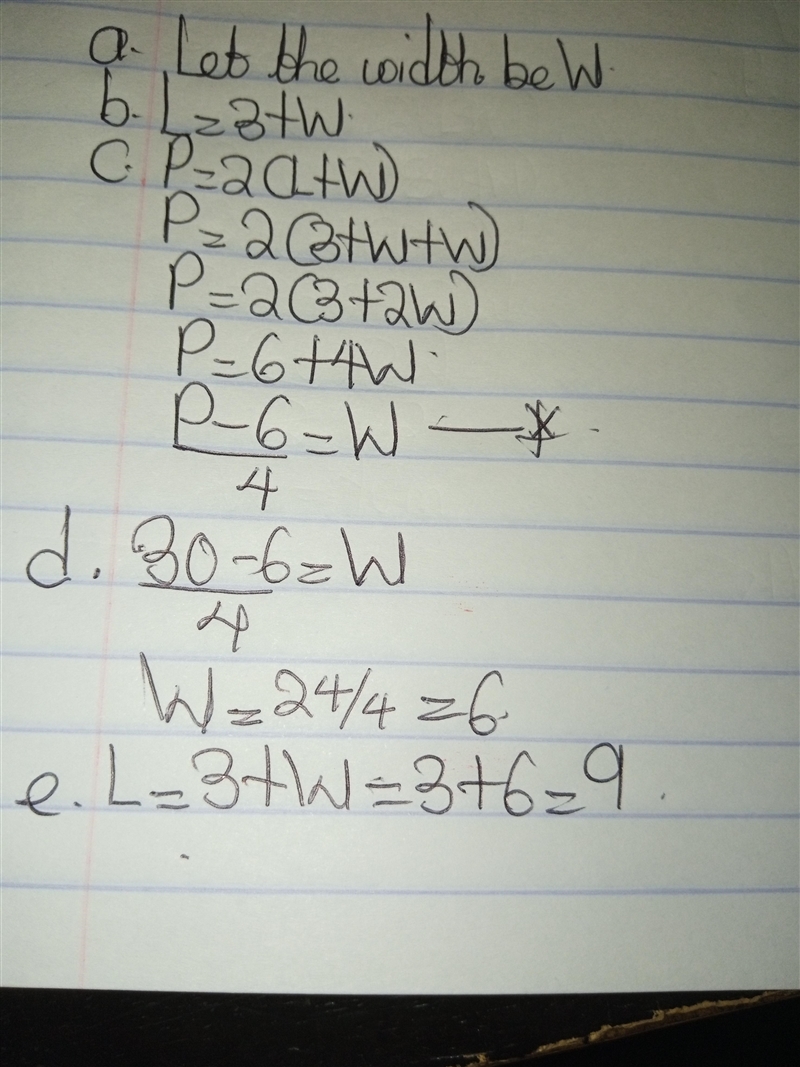 a. Let the width be W.
b. L=3+W.
C. P=2(L+W)
P=2(3+W+W)
P=2(3+2W)
P=6+4W.
P-6/4=W —*.
d. 30-6/4=W
W=24/4=6.
e. L=3+W=3+6=9.